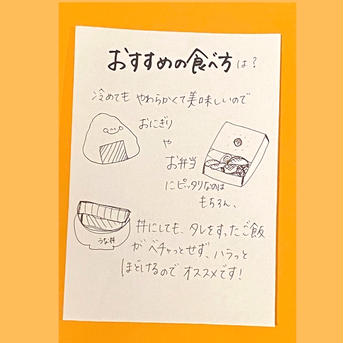 おすすめの食べ方は?
冷めても やわらかくて美味しいので
おにぎり
や
お弁当
にピッタリなのは
もちろん、
うな丼
丼にしても、タレをすったご飯
がベチャっとせず、ハラっと
ほどけるので オススメです!